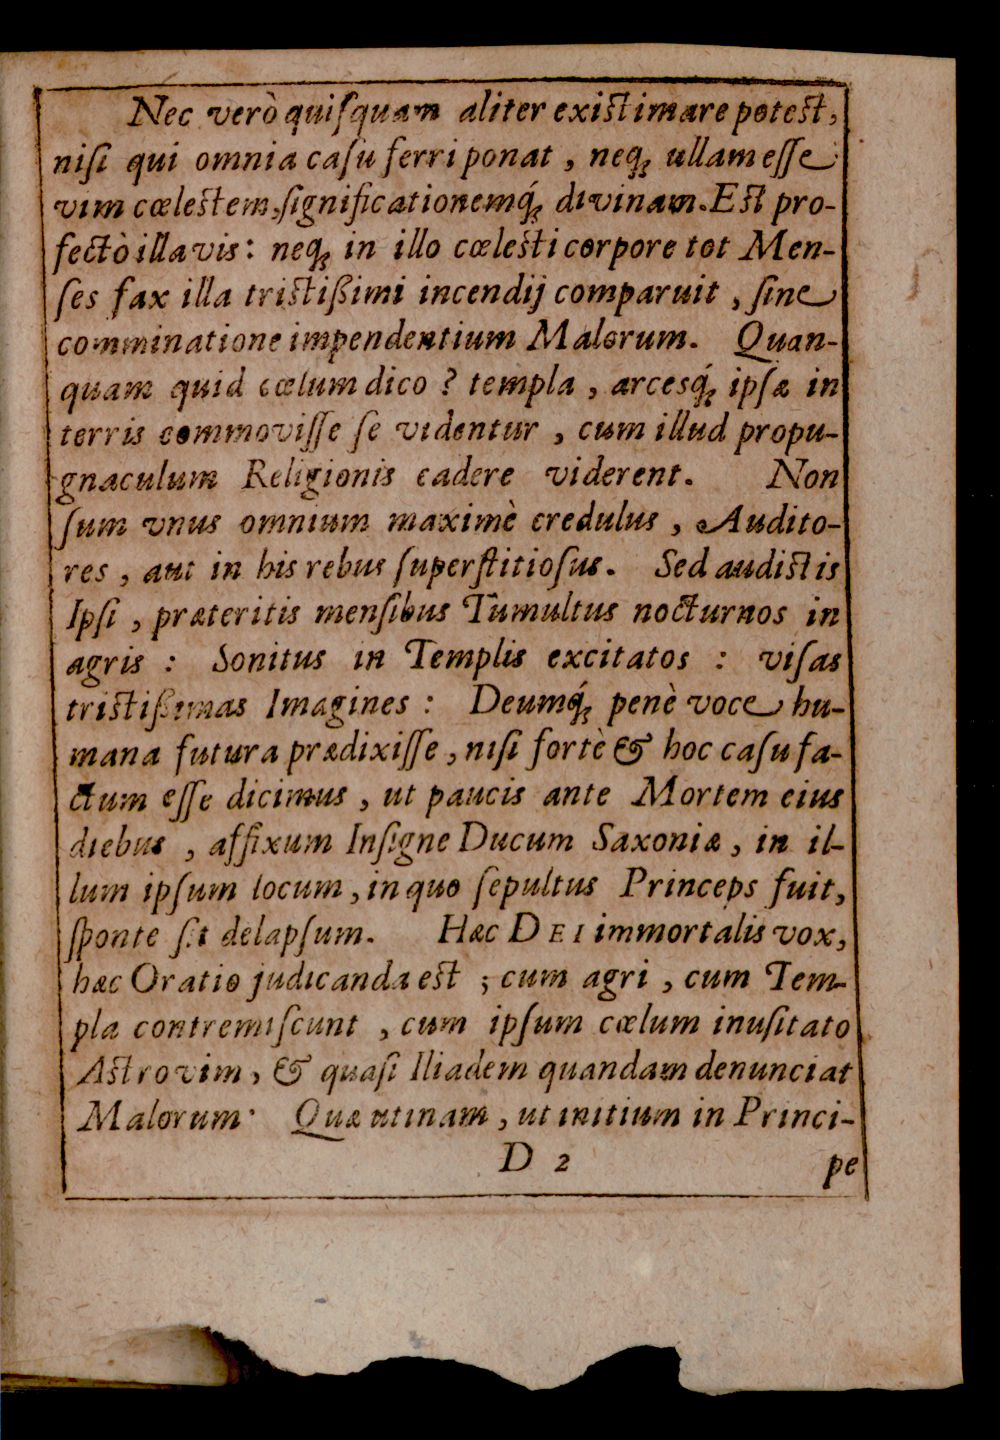 Nec verò quiſquam aliter existimare potest,
niſi qui omnia caſu ferri ponat, neq; ullam eſſe
vim cœlestem, ſignificationemq́; divinam. Est pro-
fectò illa vis: neq; in illo cœlesti corpore tot Men-
ſes fax illa tristißimi incendij comparuit, ſine
comminatione impendentium Malorum. Quan-
quam quid cœlum dico? templa, arcesq́; ipſæ in
terris commoviſſe ſe videntur, cum illud propu-
gnaculum Religionis cadere viderent. Non
ſum vnus omnium maximè credulus, Audito-
res, aut in his rebus ſuperſtitioſus. Sed audistis
Ipſi, præteritis menſibus Tumultus nocturnos in
agris: Sonitus in Templis excitatos: viſas
tristißimas Imagines: Deumq́; penè voce hu-
mana futura prædixiſſe, niſi fortè & hoc caſu fa-
ctum eſſe dicimus, ut paucis ante Mortem eius
diebus, affixum Inſigne Ducum Saxoniæ, in il-
lum ipſum locum, in quo ſepultus Princeps fuit,
ſponte ſit delapſum. Hæc DEI immortalis vox,
hæc Oratio judicanda est; cum agri, cum Tem-
pla contremiſcunt, cum ipſum cœlum inuſitato
Astro vim, & quaſi Iliadem quandam denunciat
Malorum. Quæ utinam, ut initium in Princi-
D 2 pe